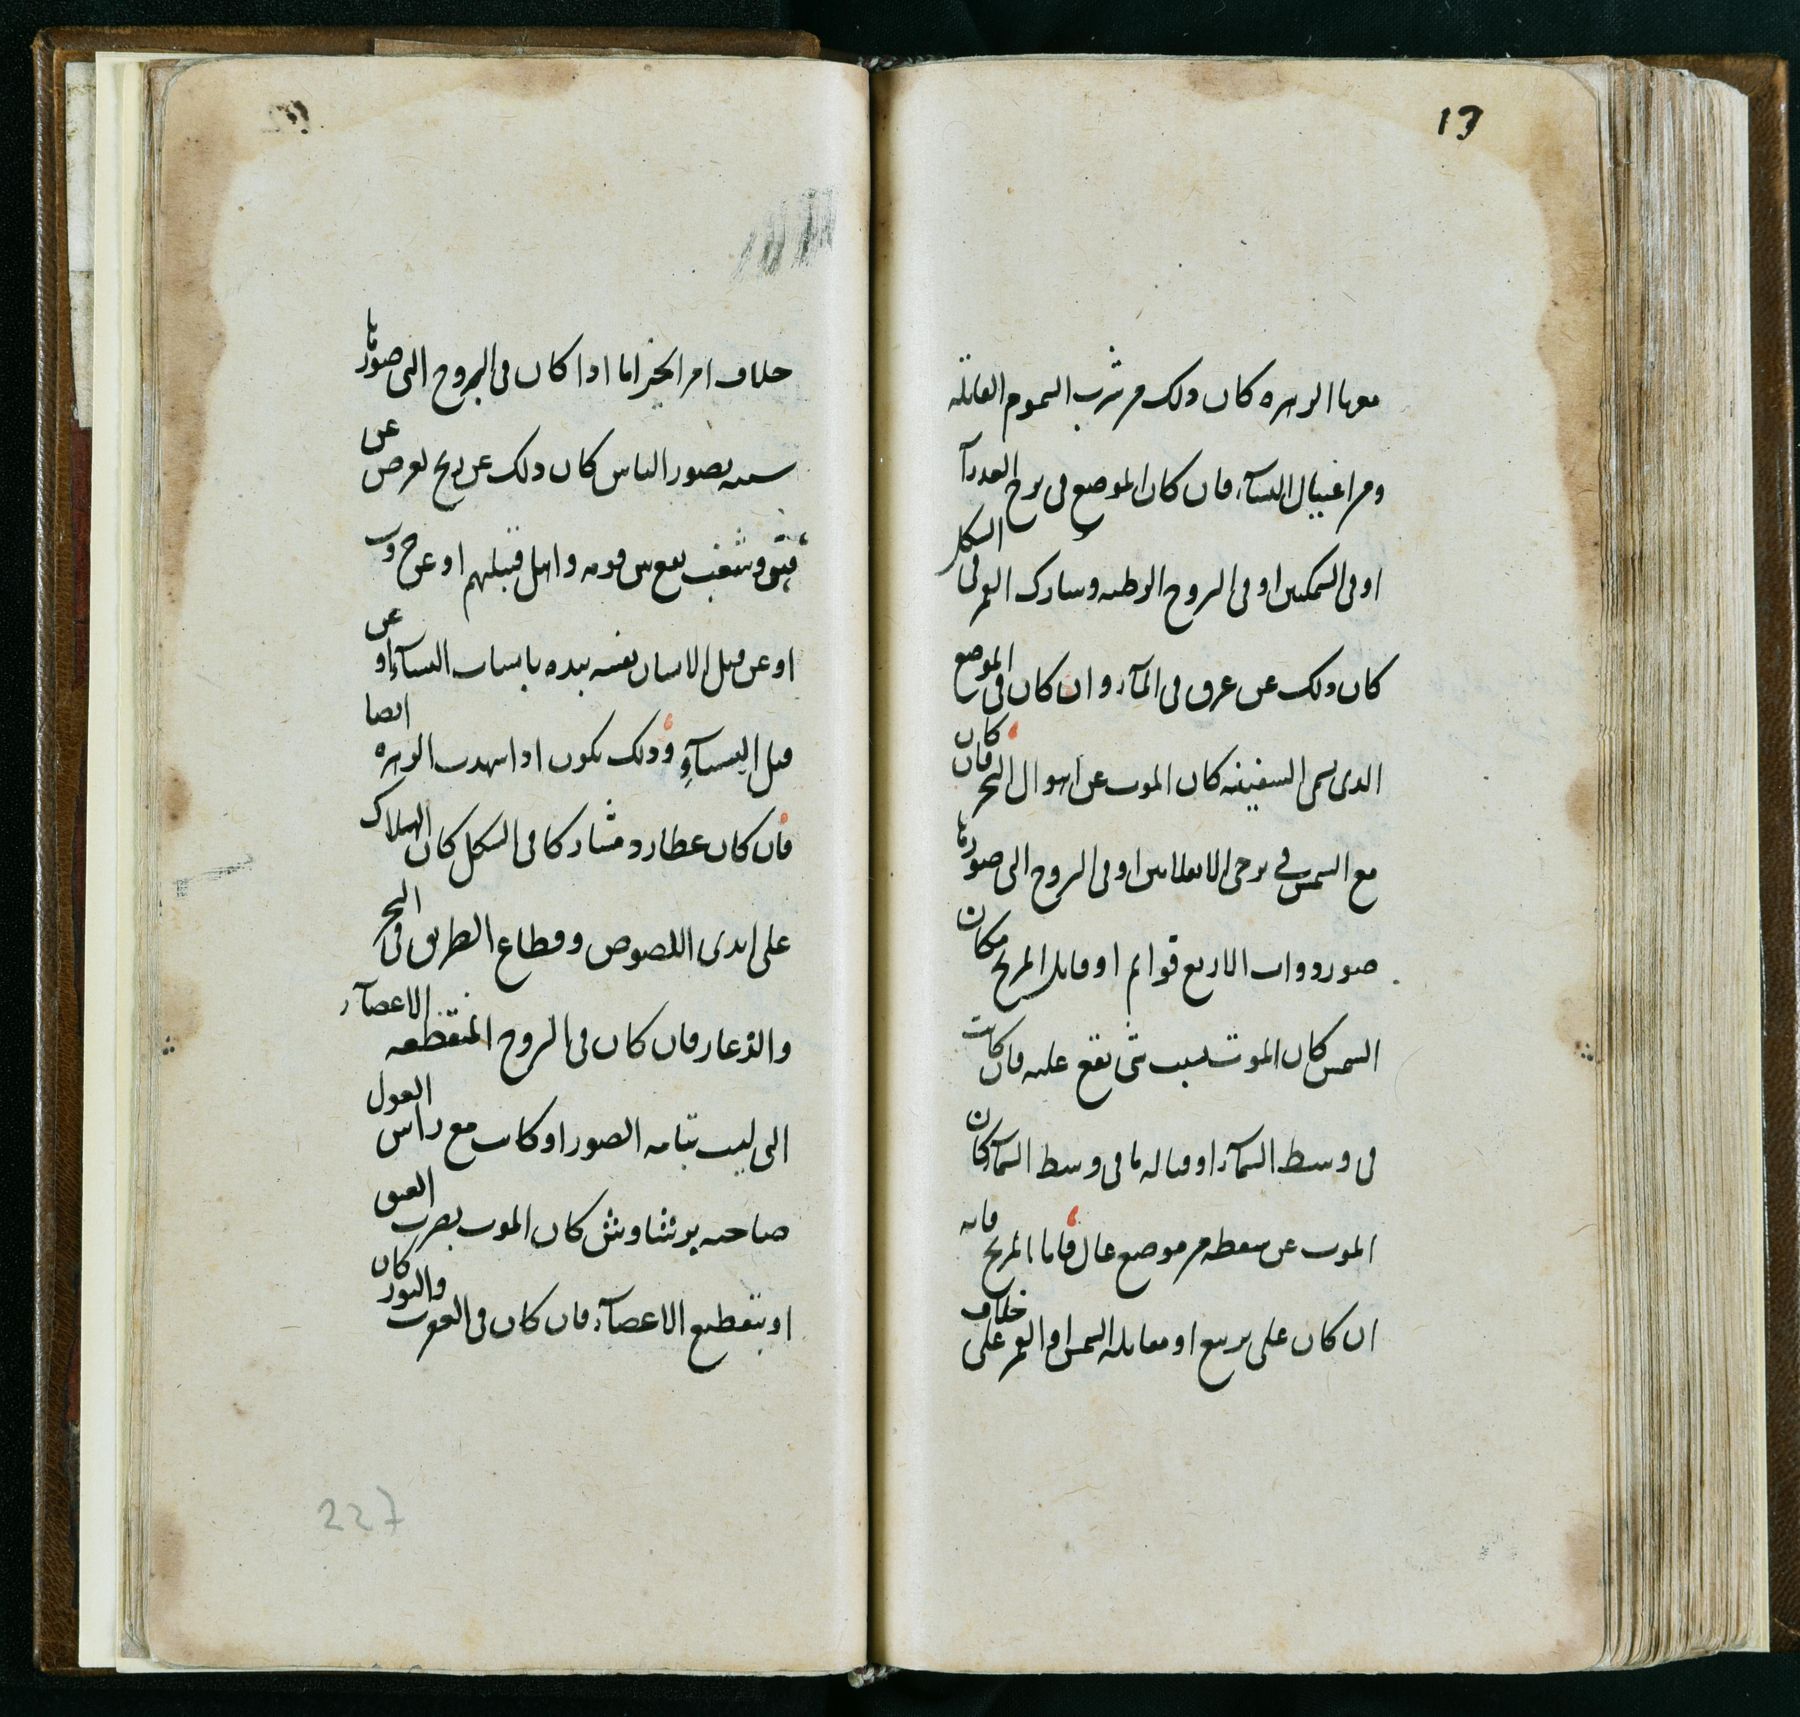 13
معها الزهره كان ذلك من شرب السموم القاتله
ومن اغتيال النسآء فان كان الموضع فى برج العذرآ
او فى السمكتين او فى البروج الرطبه وشارك القمر فى الشكل
كان ذلك عن غرق فى المآء وان كان فى الموضع
الذى يسمى السفينه كان الموت عن اهوال البحر فان كان
مع الشمس فى برجى الانقلابين او فى البروج التى صورها
صور دواب الاربع قوائم او قابل المريخ مكان
الشمس كان الموت بسبب شى يقع عليه فان كانت
فى وسط السمآء او قباله ما فى وسط السمآء كان
الموت عن سقطه من موضع عال فاما المريخ فانه
ان كان على تربيع او مقابله الشمس او القمر على خلاف
خلاف امر الخير اما اذا كان فى البروج التى صورها
شبيه بصور الناس كان ذلك عن ذبح يعرض عن
فتن وشغب يقع من قومه واهل قبيلهم او عن حروب
او عن قتل الانسان نفسه بيده باسباب النسآء او عن
قتل النسآء وذلك يكون اذا شهدت الزهره ايضا
فان كان عطارد مشاركا فى الشكل كان الهلاك
على ايدى اللصوص وقطاع الطريق فى البحر
والذعار فان كان فى البروج المنقطعه الاعضآء
التى ليست بتامه الصور او كانت مع راس الغول
صاحبه برشاوش كان الموت بضرب العنق
او بتقطيع الاعضآء فان كان فى العقرب والثور كان
227